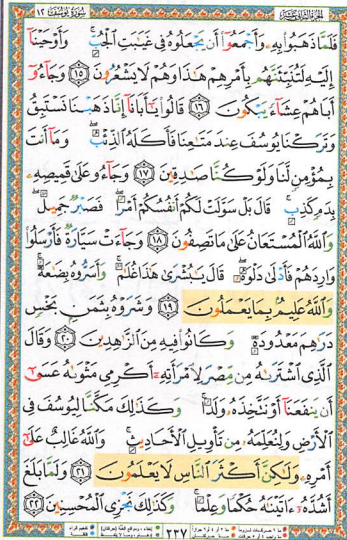 سورة يوسف ١٢
فَلَمَّا ذَهَبُوا۟ بِهِۦ وَأَجْمَعُوٓا۟ أَن يَجْعَلُوهُ فِى غَيَـٰبَتِ ٱلْجُبِّ ۚ وَأَوْحَيْنَآ
إِلَيْهِ لَتُنَبِّئَنَّهُم بِأَمْرِهِمْ هَـٰذَا وَهُمْ لَا يَشْعُرُونَ ١٥ وَجَآءُوٓ
أَبَاهُمْ عِشَآءً يَبْكُونَ ١٦ قَالُوا۟ يَـٰٓأَبَانَآ إِنَّا ذَهَبْنَا نَسْتَبِقُ
وَتَرَكْنَا يُوسُفَ عِندَ مَتَـٰعِنَا فَأَكَلَهُ ٱلذِّئْبُ ۖ وَمَآ أَنتَ
بِمُؤْمِنٍ لَّنَا وَلَوْ كُنَّا صَـٰدِقِينَ ١٧ وَجَآءُو عَلَىٰ قَمِيصِهِۦ
بِدَمٍ كَذِبٍ ۚ قَالَ بَلْ سَوَّلَتْ لَكُمْ أَنفُسُكُمْ أَمْرًا ۖ فَصَبْرٌ جَمِيلٌ ۖ
وَٱللَّهُ ٱلْمُسْتَعَانُ عَلَىٰ مَا تَصِفُونَ ١٨ وَجَآءَتْ سَيَّارَةٌ فَأَرْسَلُوا۟
وَارِدَهُمْ فَأَدْلَىٰ دَلْوَهُۥ ۖ قَالَ يَـٰبُشْرَىٰ هَـٰذَا غُلَـٰمٌ ۚ وَأَسَرُّوهُ بِضَـٰعَةً ۚ
وَٱللَّهُ عَلِيمٌۢ بِمَا يَعْمَلُونَ ١٩ وَشَرَوْهُ بِثَمَنٍۭ بَخْسٍ
دَرَٰهِمَ مَعْدُودَةٍ وَكَانُوا۟ فِيهِ مِنَ ٱلزَّٰهِدِينَ ٢٠ وَقَالَ
ٱلَّذِى ٱشْتَرَىٰهُ مِن مِّصْرَ لِٱمْرَأَتِهِۦٓ أَكْرِمِى مَثْوَىٰهُ عَسَىٰٓ
أَن يَنفَعَنَآ أَوْ نَتَّخِذَهُۥ وَلَدًا ۚ وَكَذَٰلِكَ مَكَّنَّا لِيُوسُفَ فِى
ٱلْأَرْضِ وَلِنُعَلِّمَهُۥ مِن تَأْوِيلِ ٱلْأَحَادِيثِ ۚ وَٱللَّهُ غَالِبٌ عَلَىٰٓ
أَمْرِهِۦ وَلَـٰكِنَّ أَكْثَرَ ٱلنَّاسِ لَا يَعْلَمُونَ ٢١ وَلَمَّا بَلَغَ
أَشُدَّهُۥٓ ءَاتَيْنَـٰهُ حُكْمًا وَعِلْمًا ۚ وَكَذَٰلِكَ نَجْزِى ٱلْمُحْسِنِينَ ٢٢
٢٣٧